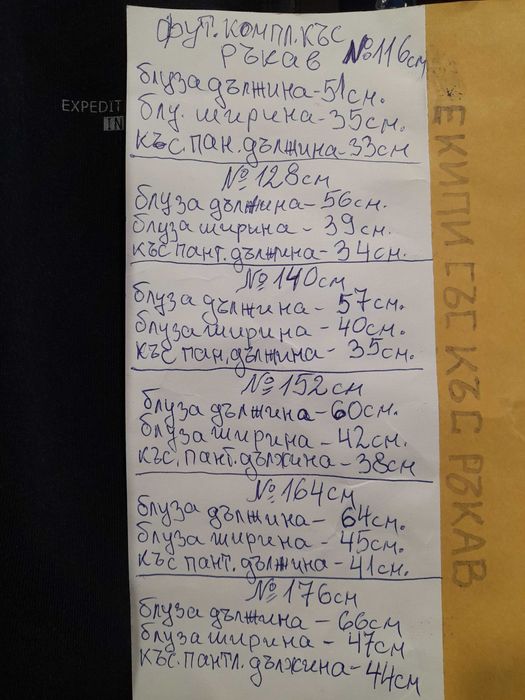 фут. компл. къс
ръкав №116см
блуза дължина-51см.
блу. ширина-35см.
къс. пан. дължина-33см
№128см
блуза дължина-56см.
блуза ширина-39см.
къс пант. дължина-34см.
№140см
блуза дължина-57см.
блуза ширина-40см.
къс пан. дължина-35см.
№152см
блуза дължина-60см.
блуза ширина-42см.
къс. пант. дължина-38см
№164см
блуза дължина-64см.
блуза ширина-45см.
къс пант. дължина-41см.
№176см
блуза дължина-66см
блуза ширина-47см
къс. пантл. дължина-44см
EXPEDIT
IN
ЕКИПИ СЪС КЪС РЪКАВ